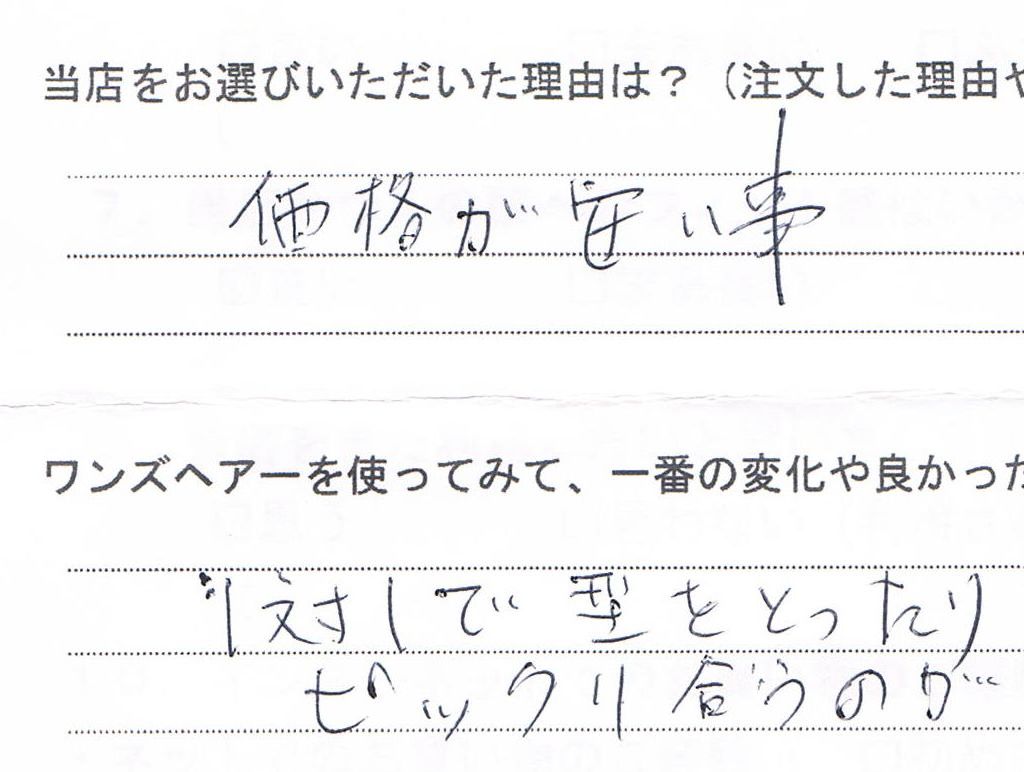 当店をお選びいただいた理由は？（注文した理由や
価格が安い事
ワンズヘアーを使ってみて、一番の変化や良かった
1対1で型をとったり
ピッタリ合うのが